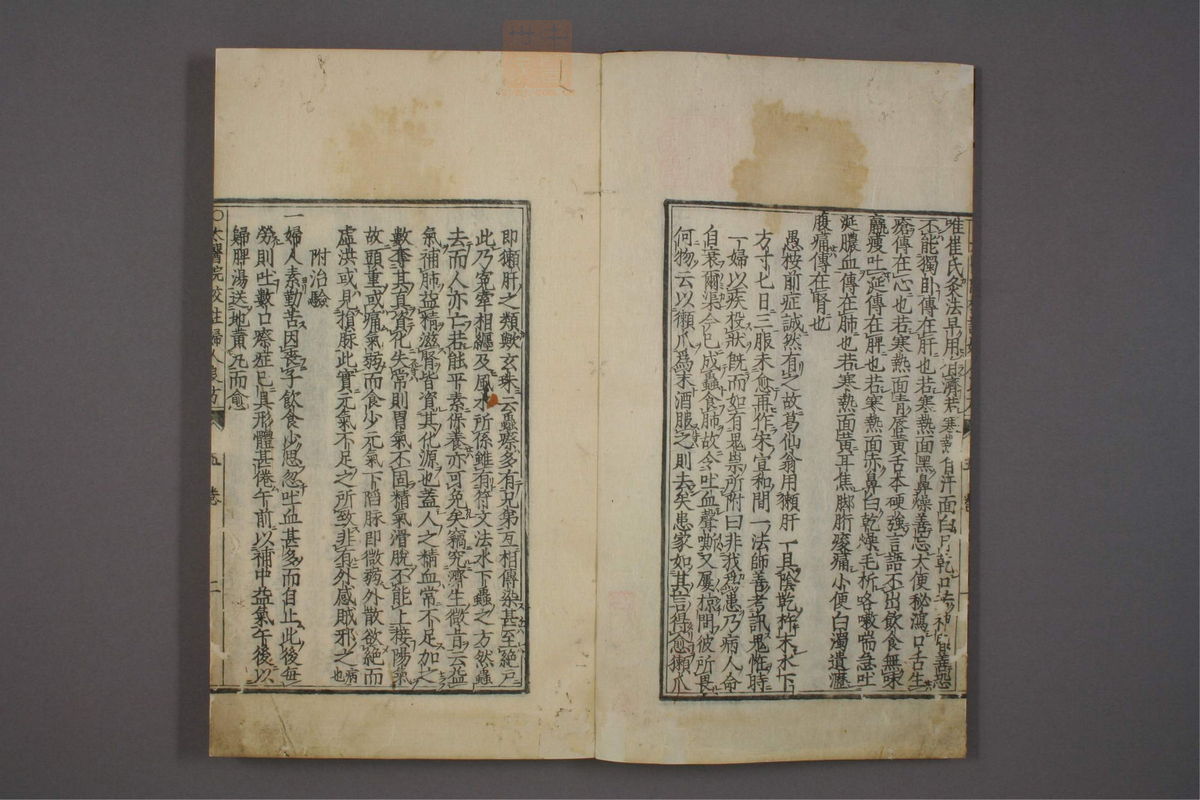 唯崔氏灸法早用有濟若寒熱自汗面白目乾口苦善恐
不能獨臥傳在肝也若寒熱面黑鼻燥善忘大便秘瀉口舌生
瘡傳在心也若寒熱面青唇黄舌本硬強言語不出飲食無味
羸瘦吐涎傳在脾也若寒熱面赤鼻白乾燥毛折咯嗽喘急吐
涎膿血傳在肺也若寒熱面黄耳焦脚胻痠痛小便白濁遺瀝
腹痛傳在腎也
愚按前症誠然有之故葛仙翁用獺肝一具陰乾杵末水下
方寸七日三服未愈再作宋宣和間一法師善考訊鬼怪時
一婦以疾投狀既而如有鬼祟所附曰非我爲患乃病人命
自衰爾渠今已成蟲食肺故令吐血聲嘶又屢掠問彼所畏
何物云以獺爪爲末酒服之則去矣患家如其言得愈獺爪
即獺肝之類歟玄珠云蟲瘵多有兄弟互相傳染甚至絶戸
此乃寃牽相纏及風水所係雖有符文法水下蟲之方然蟲
去而人亦亡若能平素保養亦可免矣竊究濟生微旨云益
氣補肺益精滋腎皆資其化源也蓋人之精血常不足加之
數奪其真資化失常則胃氣不固精氣滑脱不能上接陽氣
故頭重或痛氣弱而食少元氣下陷脉即微弱外散欲絶而
虚洪或見損脉此實元氣不足之所致非有外感賊邪之病也
附治驗
一婦人素勤苦因喪子飲食少思忽吐血甚多而自止此後毎
勞則吐數口瘵症已具形體甚倦午前以補中益氣午後以
歸脾湯送地黄丸而愈
○太醫院校註婦人良方 五卷 二